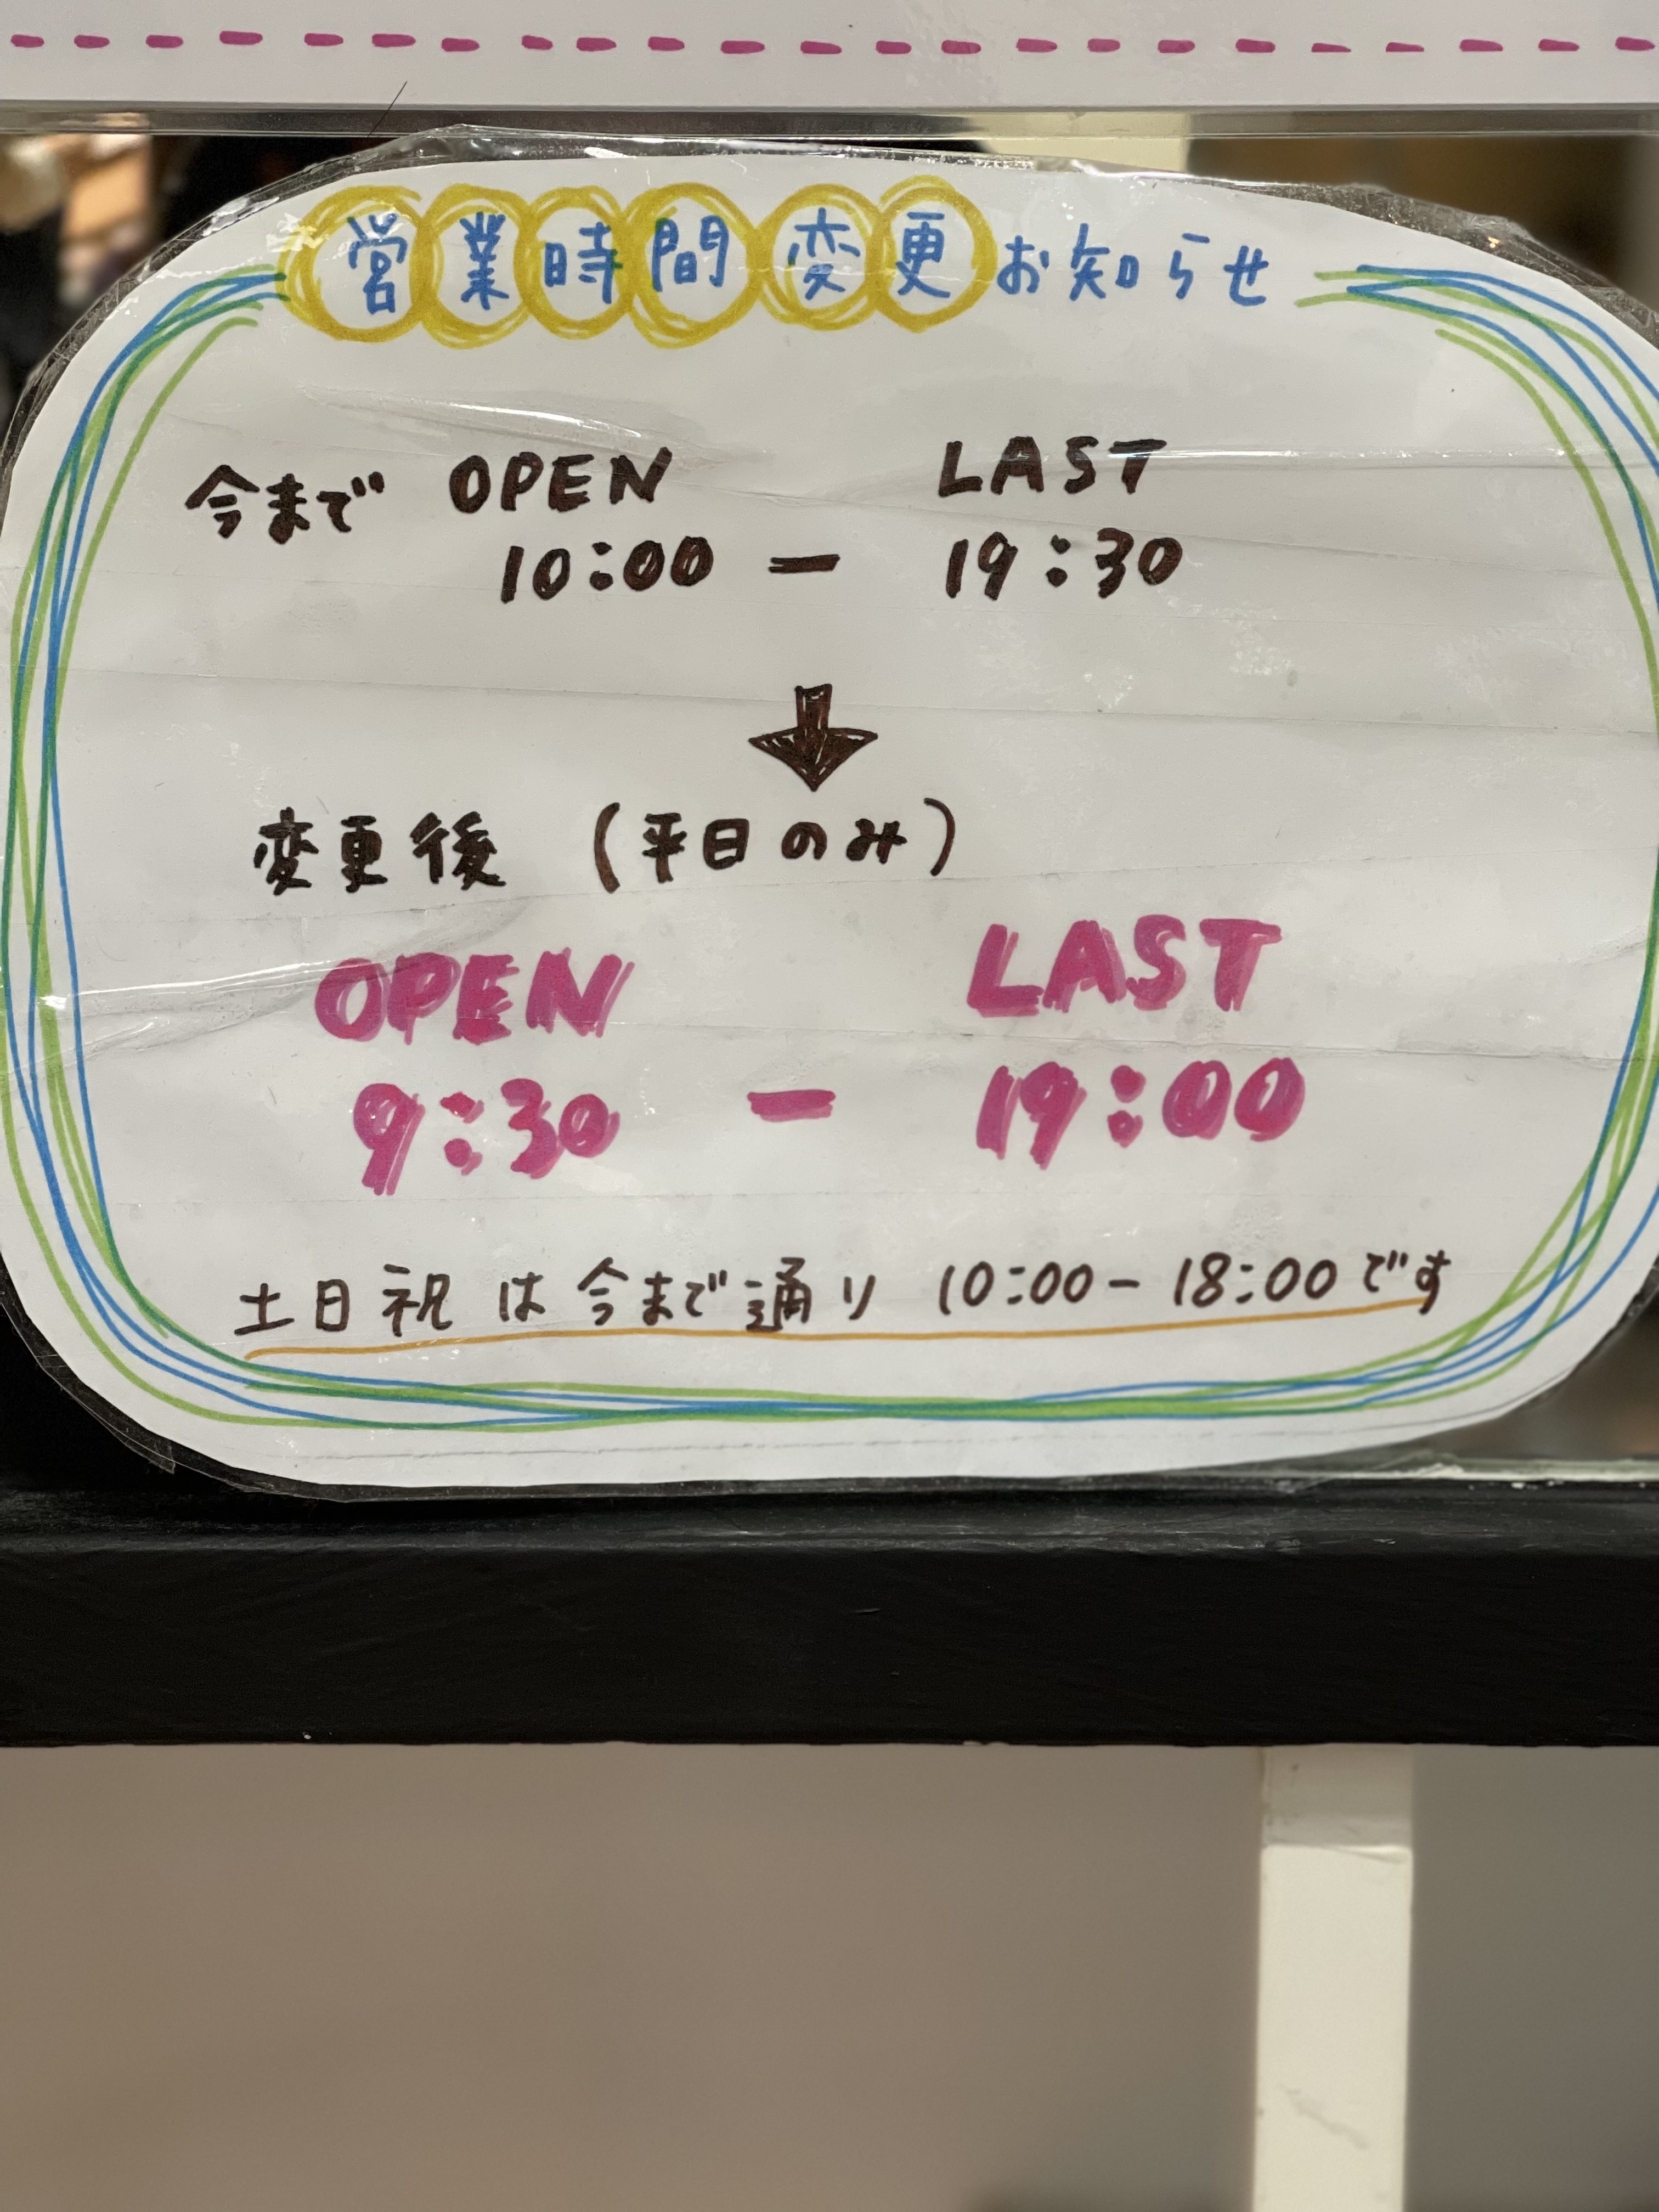 営業時間変更お知らせ
今まで OPEN LAST
10:00 － 19:30
変更後 (平日のみ)
OPEN LAST
9:30 － 19:00
土日祝は今まで通り 10:00－18:00です